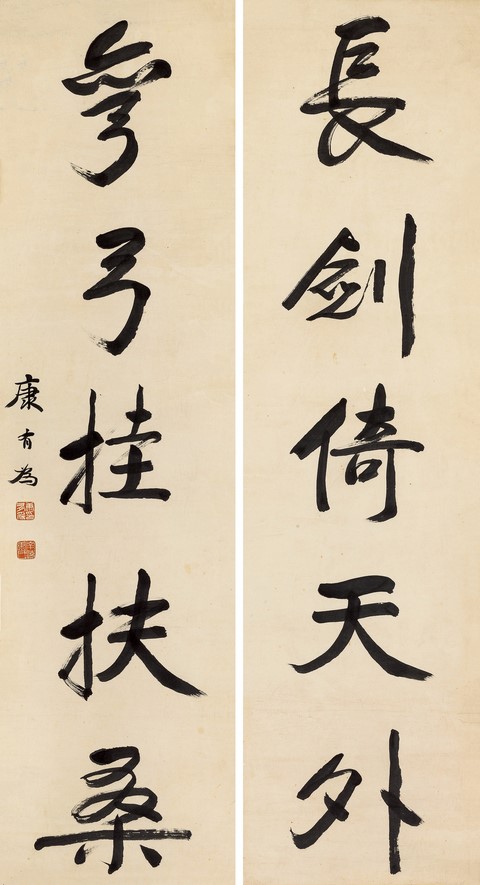 長劍倚天外
彎弓挂扶桑
康有為